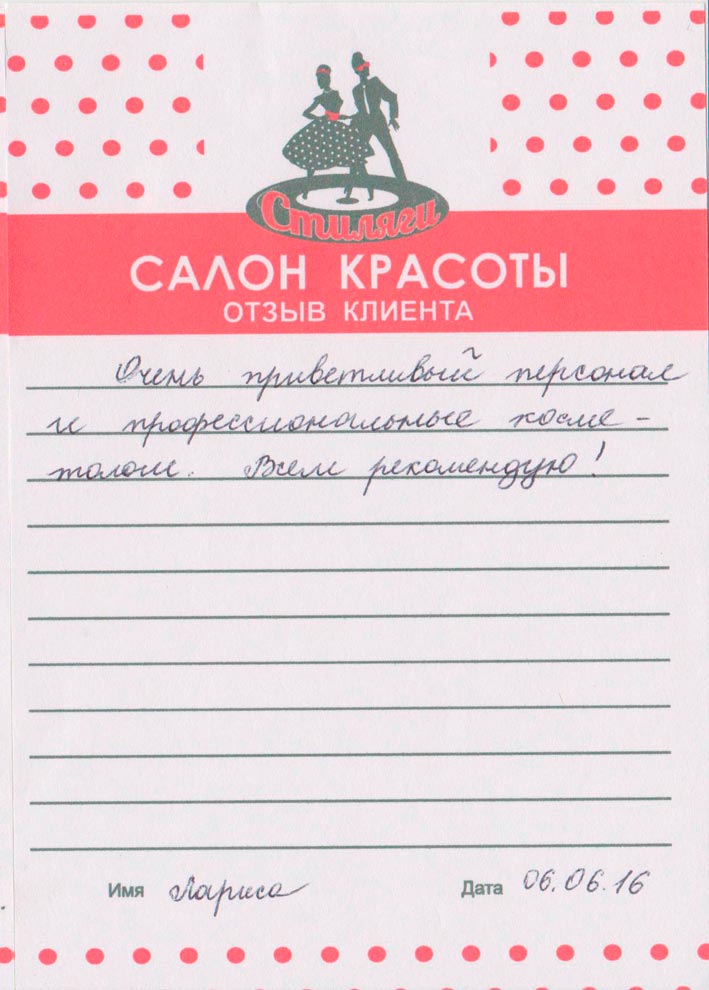 Стиляги
САЛОН КРАСОТЫ
ОТЗЫВ КЛИЕНТА
Очень приветливый персонал
и профессиональные косме-
тологи. Всем рекомендую!
Имя Лариса Дата 06.06.16